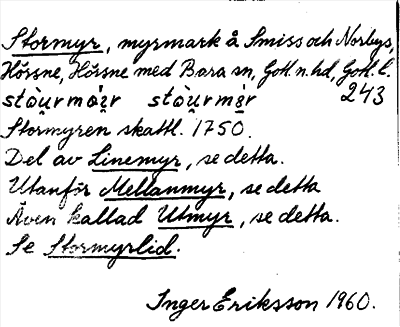 Stormyr, myrmark å Smiss och Norbys,
Hörsne, Hörsne med Bara sn, Gotl. n. hd, Gotl. l.
243
Stormyren skattl. 1750.
Del av Linemyr, se detta.
Utanför Mellanmyr, se detta
Även kallad Utmyr, se detta.
Se Stormyrlid.
Inger Eriksson 1960.